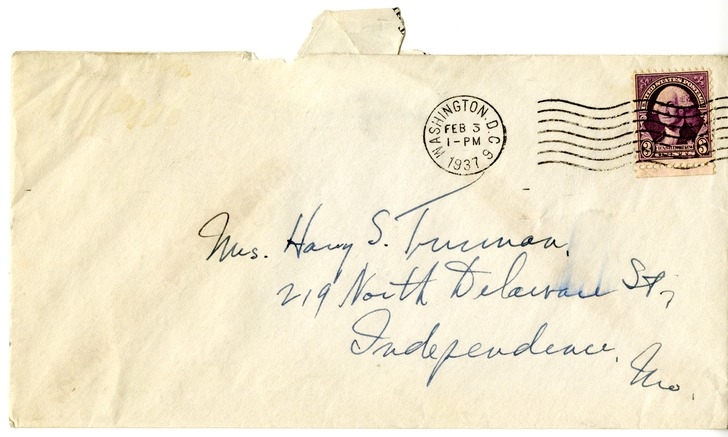 WASHINGTON, D.C.
FEB 3
1-PM
1937
9
UNITED STATES POSTAGE
3 3
CENTS
Mrs. Harry S. Truman,
219 North Delaware St.,
Independence,
Mo.